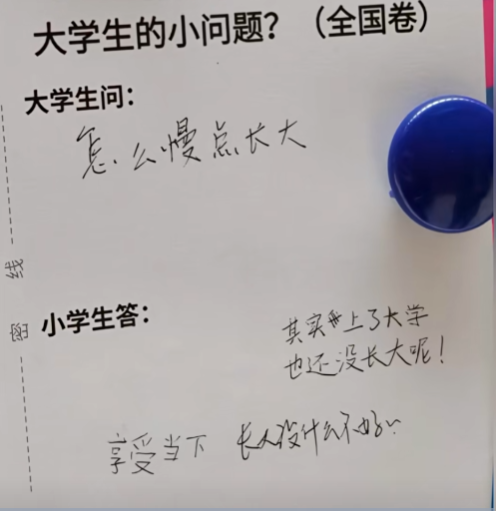 大学生的小问题？（全国卷）
大学生问：
怎么慢点长大
线
密
小学生答：
其实上了大学
也还没长大呢！
享受当下 长大没什么不好